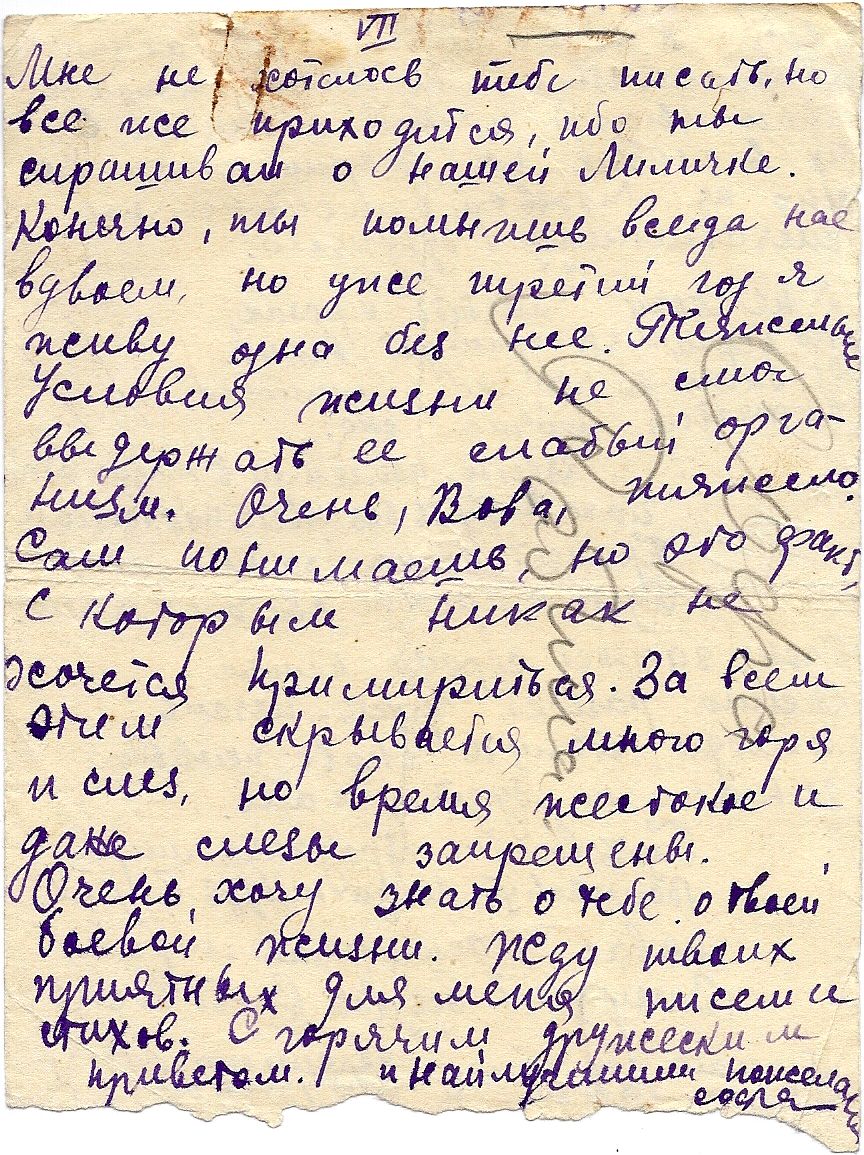 VII
Мне не хотелось тебе писать, но
все же приходится, ибо ты
спрашивал о нашей Лиличке.
Конечно, ты помнишь всегда нас
вдвоем, но уже третий год я
живу одна без нее. Тяжелые
условия жизни не смог
выдержать ее слабый орга-
низм. Очень, Вова, тяжело.
Сам понимаешь, но это факт,
с которым никак не
хочется примириться. За всем
этим скрывается много горя
и слез, но время жестокое и
даже слезы запрещены.
Очень хочу знать о тебе о твоей
боевой жизни. Жду твоих
приятных для меня писем и
стихов. С горячим дружеским
приветом. и наилучшими пожелан
Софа